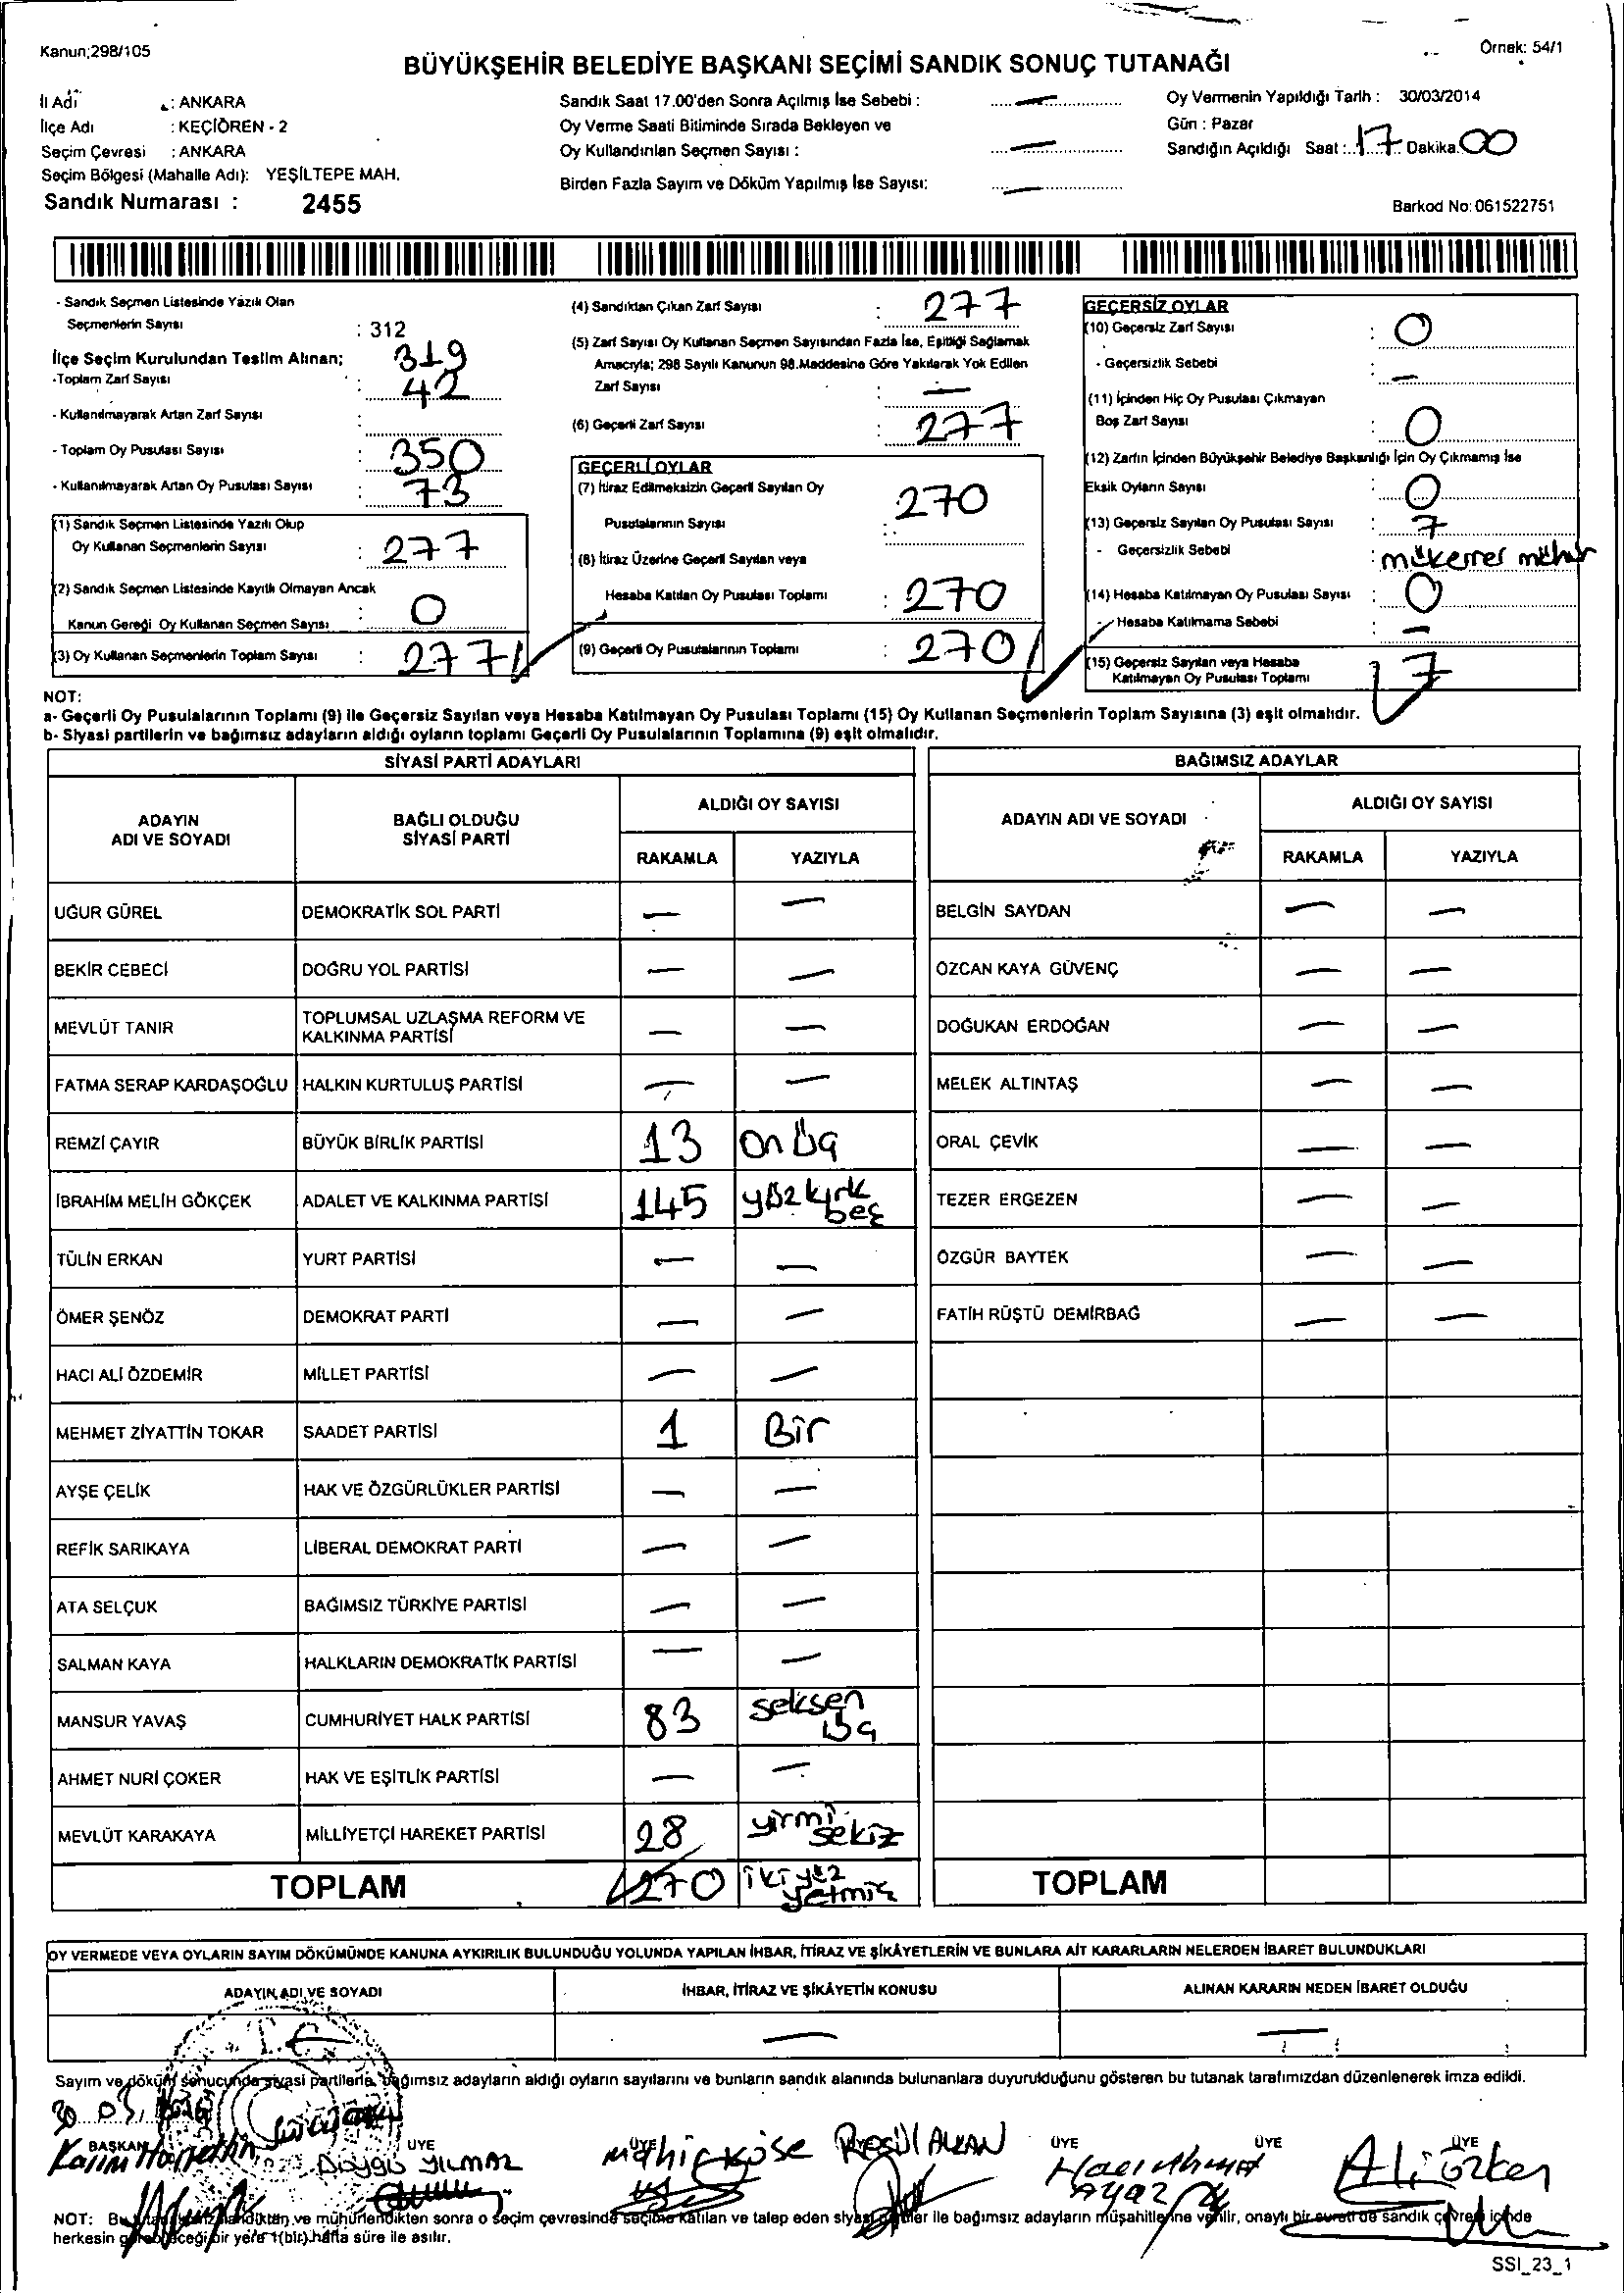 Kanun;298/105
Örnek: 54/1
BÜYÜKŞEHİR BELEDİYE BAŞKANI SEÇİMİ SANDIK SONUÇ TUTANAĞI
İl Adı : ANKARA
İlçe Adı : KEÇİÖREN - 2
Seçim Çevresi : ANKARA
Seçim Bölgesi (Mahalle Adı): YEŞİLTEPE MAH.
Sandık Numarası : 2455
Sandık Saat 17.00'den Sonra Açılmış İse Sebebi : —
Oy Verme Saati Bitiminde Sırada Bekleyen ve
Oy Kullandırılan Seçmen Sayısı : —
Birden Fazla Sayım ve Döküm Yapılmış İse Sayısı: —
Oy Vermenin Yapıldığı Tarih : 30/03/2014
Gün : Pazar
Sandığın Açıldığı Saat : 17 Dakika 00
Barkod No: 061522751
- Sandık Seçmen Listesinde Yazılı Olan
Seçmenlerin Sayısı : 312
İlçe Seçim Kurulundan Teslim Alınan; 319
-Toplam Zarf Sayısı : 42
- Kullanılmayarak Artan Zarf Sayısı :
- Toplam Oy Pusulası Sayısı : 350
- Kullanılmayarak Artan Oy Pusulası Sayısı : 73
(1) Sandık Seçmen Listesinde Yazılı Olup
Oy Kullanan Seçmenlerin Sayısı : 277
(2) Sandık Seçmen Listesinde Kayıtlı Olmayan Ancak
Kanun Gereği Oy Kullanan Seçmen Sayısı : 0
(3) Oy Kullanan Seçmenlerin Toplam Sayısı : 277
(4) Sandıktan Çıkan Zarf Sayısı : 277
(5) Zarf Sayısı Oy Kullanan Seçmen Sayısından Fazla İse, Eşitliği Sağlamak
Amacıyla; 298 Sayılı Kanunun 98.Maddesine Göre Yakılarak Yok Edilen
Zarf Sayısı : —
(6) Geçerli Zarf Sayısı : 277
GEÇERLİ OYLAR
(7) İtiraz Edilmeksizin Geçerli Sayılan Oy
Pusulalarının Sayısı : 270
(8) İtiraz Üzerine Geçerli Sayılan veya
Hesaba Katılan Oy Pusulası Toplamı : 270
(9) Geçerli Oy Pusulalarının Toplamı : 270
GEÇERSİZ OYLAR
(10) Geçersiz Zarf Sayısı : 0
- Geçersizlik Sebebi : —
(11) İçinden Hiç Oy Pusulası Çıkmayan
Boş Zarf Sayısı : 0
(12) Zarfın İçinden Büyükşehir Belediye Başkanlığı İçin Oy Çıkmamış İse
Eksik Oyların Sayısı : 0
(13) Geçersiz Sayılan Oy Pusulası Sayısı : 7
- Geçersizlik Sebebi : mükerrer mühür
(14) Hesaba Katılmayan Oy Pusulası Sayısı : 0
- Hesaba Katılmama Sebebi : —
(15) Geçersiz Sayılan veya Hesaba
Katılmayan Oy Pusulası Toplamı : 7
NOT:
a- Geçerli Oy Pusulalarının Toplamı (9) ile Geçersiz Sayılan veya Hesaba Katılmayan Oy Pusulası Toplamı (15) Oy Kullanan Seçmenlerin Toplam Sayısına (3) eşit olmalıdır.
b- Siyasi partilerin ve bağımsız adayların aldığı oyların toplamı Geçerli Oy Pusulalarının Toplamına (9) eşit olmalıdır.
SİYASİ PARTİ ADAYLARI
ADAYIN ADI VE SOYADI BAĞLI OLDUĞU SİYASİ PARTİ ALDIĞI OY SAYISI
RAKAMLA YAZIYLA
UĞUR GÜREL DEMOKRATİK SOL PARTİ — —
BEKİR CEBECİ DOĞRU YOL PARTİSİ — —
MEVLÜT TANIR TOPLUMSAL UZLAŞMA REFORM VE KALKINMA PARTİSİ — —
FATMA SERAP KARDAŞOĞLU HALKIN KURTULUŞ PARTİSİ — —
REMZİ ÇAYIR BÜYÜK BİRLİK PARTİSİ 13 on üç
İBRAHİM MELİH GÖKÇEK ADALET VE KALKINMA PARTİSİ 145 yüz kırk beş
TÜLİN ERKAN YURT PARTİSİ — —
ÖMER ŞENÖZ DEMOKRAT PARTİ — —
HACI ALİ ÖZDEMİR MİLLET PARTİSİ — —
MEHMET ZİYATTİN TOKAR SAADET PARTİSİ 1 Bir
AYŞE ÇELİK HAK VE ÖZGÜRLÜKLER PARTİSİ — —
REFİK SARIKAYA LİBERAL DEMOKRAT PARTİ — —
ATA SELÇUK BAĞIMSIZ TÜRKİYE PARTİSİ — —
SALMAN KAYA HALKLARIN DEMOKRATİK PARTİSİ — —
MANSUR YAVAŞ CUMHURİYET HALK PARTİSİ 83 seksen üç
AHMET NURİ ÇOKER HAK VE EŞİTLİK PARTİSİ — —
MEVLÜT KARAKAYA MİLLİYETÇİ HAREKET PARTİSİ 28 yirmi sekiz
TOPLAM 270 iki yüz yetmiş
BAĞIMSIZ ADAYLAR
ADAYIN ADI VE SOYADI ALDIĞI OY SAYISI
RAKAMLA YAZIYLA
BELGİN SAYDAN — —
ÖZCAN KAYA GÜVENÇ — —
DOĞUKAN ERDOĞAN — —
MELEK ALTINTAŞ — —
ORAL ÇEVİK — —
TEZER ERGEZEN — —
ÖZGÜR BAYTEK — —
FATİH RÜŞTÜ DEMİRBAĞ — —
TOPLAM
OY VERMEDE VEYA OYLARIN SAYIM DÖKÜMÜNDE KANUNA AYKIRILIK BULUNDUĞU YOLUNDA YAPILAN İHBAR, İTİRAZ VE ŞİKÂYETLERİN VE BUNLARA AİT KARARLARIN NELERDEN İBARET BULUNDUKLARI
ADAYIN ADI VE SOYADI İHBAR, İTİRAZ VE ŞİKÂYETİN KONUSU ALINAN KARARIN NEDEN İBARET OLDUĞU
— — —
T.C.
Sayım ve döküm sonucunda siyasi partilerle, bağımsız adayların aldığı oyların sayılarını ve bunların sandık alanında bulunanlara duyurulduğunu gösteren bu tutanak tarafımızdan düzenlenerek imza edildi.
30 03
BAŞKAN ÜYE ÜYE ÜYE ÜYE ÜYE
Duygu YILMAZ Mahir Köse Resül ALKAN Hacı Ahmet Ayaz Ali özker
NOT: imzalandıktan ve mühürlendikten sonra o seçim çevresinde seçime katılan ve talep eden siyasi partiler ile bağımsız adayların müşahitlerine verilir, onaylı bir sureti de sandık çevresi içinde
herkesin görebileceği bir yere 1(bir) hafta süre ile asılır.
SSI_23_1